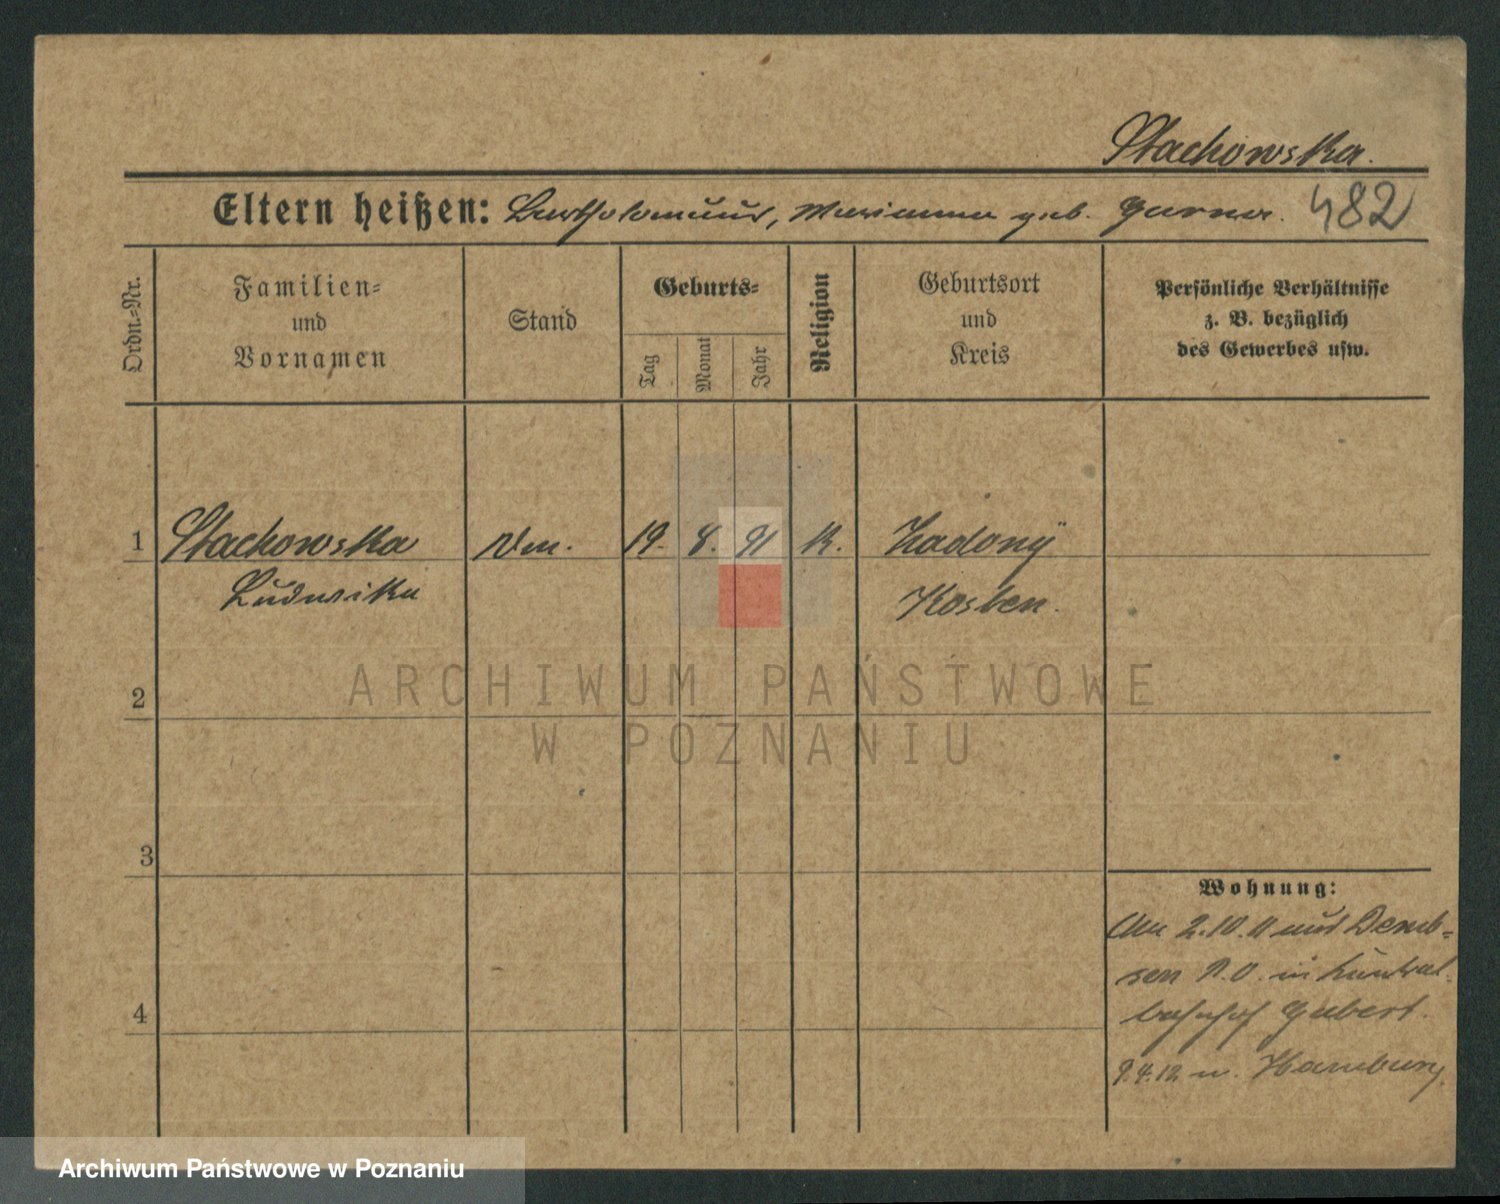 Stachowska.
Eltern heißen: Bartholomäus, Marianna geb. Garna.
482
Ordn.=Nr.
Familien=
und
Vornamen
Stand
Geburts=
Tag
Monat
Jahr
Religion
Geburtsort
und
Kreis
Persönliche Verhältnisse
z. B. bezüglich
des Gewerbes usw.
1 Stachowska 19. 8. 91 K. Zadory
Ludwika Kosten.
2
3
4
Wohnung:
Am 2.10.11 aus Demb=
sen P.O. in Zentral=
bahnhof Gubert.
9.4.12 n. Hamburg.
ARCHIWUM PAŃSTWOWE
W POZNANIU
Archiwum Państwowe w Poznaniu